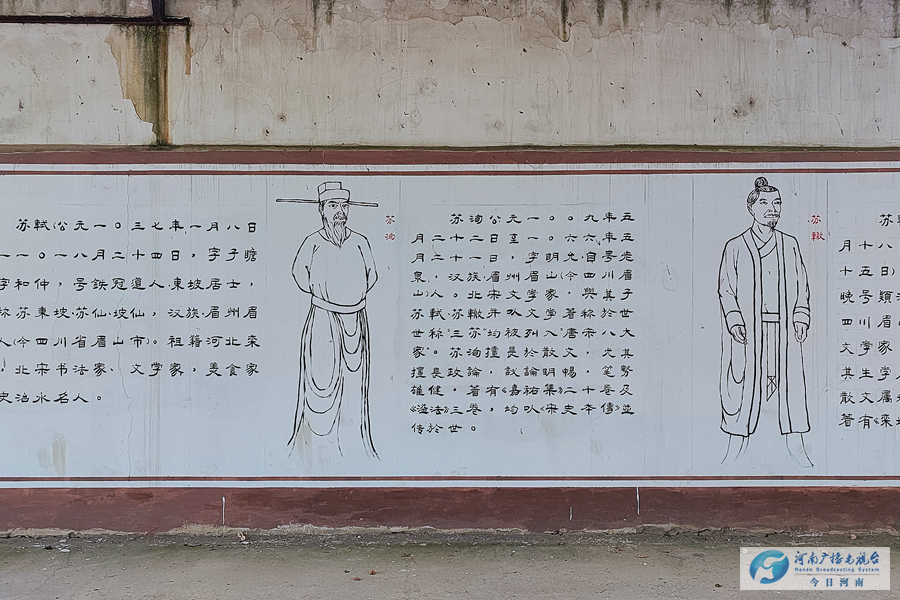 苏軾(公元一〇三七年一月八日
一一〇一八月二十四日，字子瞻
字和仲，号鉄冠道人·東坡居士，
称苏東坡·苏仙·坡仙，汉族·眉州眉
人(今四川省眉山市)。祖籍河北栾
，北宋书法家、文学家，美食家
史治水名人。
苏洵
苏洵公元一〇〇九年五
月二十二日至一〇六六年五
月二十一日，字明允·自号老
泉，汉族·眉州眉山(今四川眉
山)人。北宋文学家，與其子
苏軾·苏轍並以文学著称於世
世称“三苏”均被列於唐宋八大
家”。苏洵擅長於散文，尤其
擅長政論，議論明暢，筆勢
雄健，著有《嘉祐集》二十卷及
《谥法》三卷，均以《宋史本傳》並
传於世。
苏轍
苏
月十八
十五日)
晚号颍
四川眉
文学家
其生学
散文屬
著有《栾
河南广播电视台
Henan Broadcasting System
今日河南